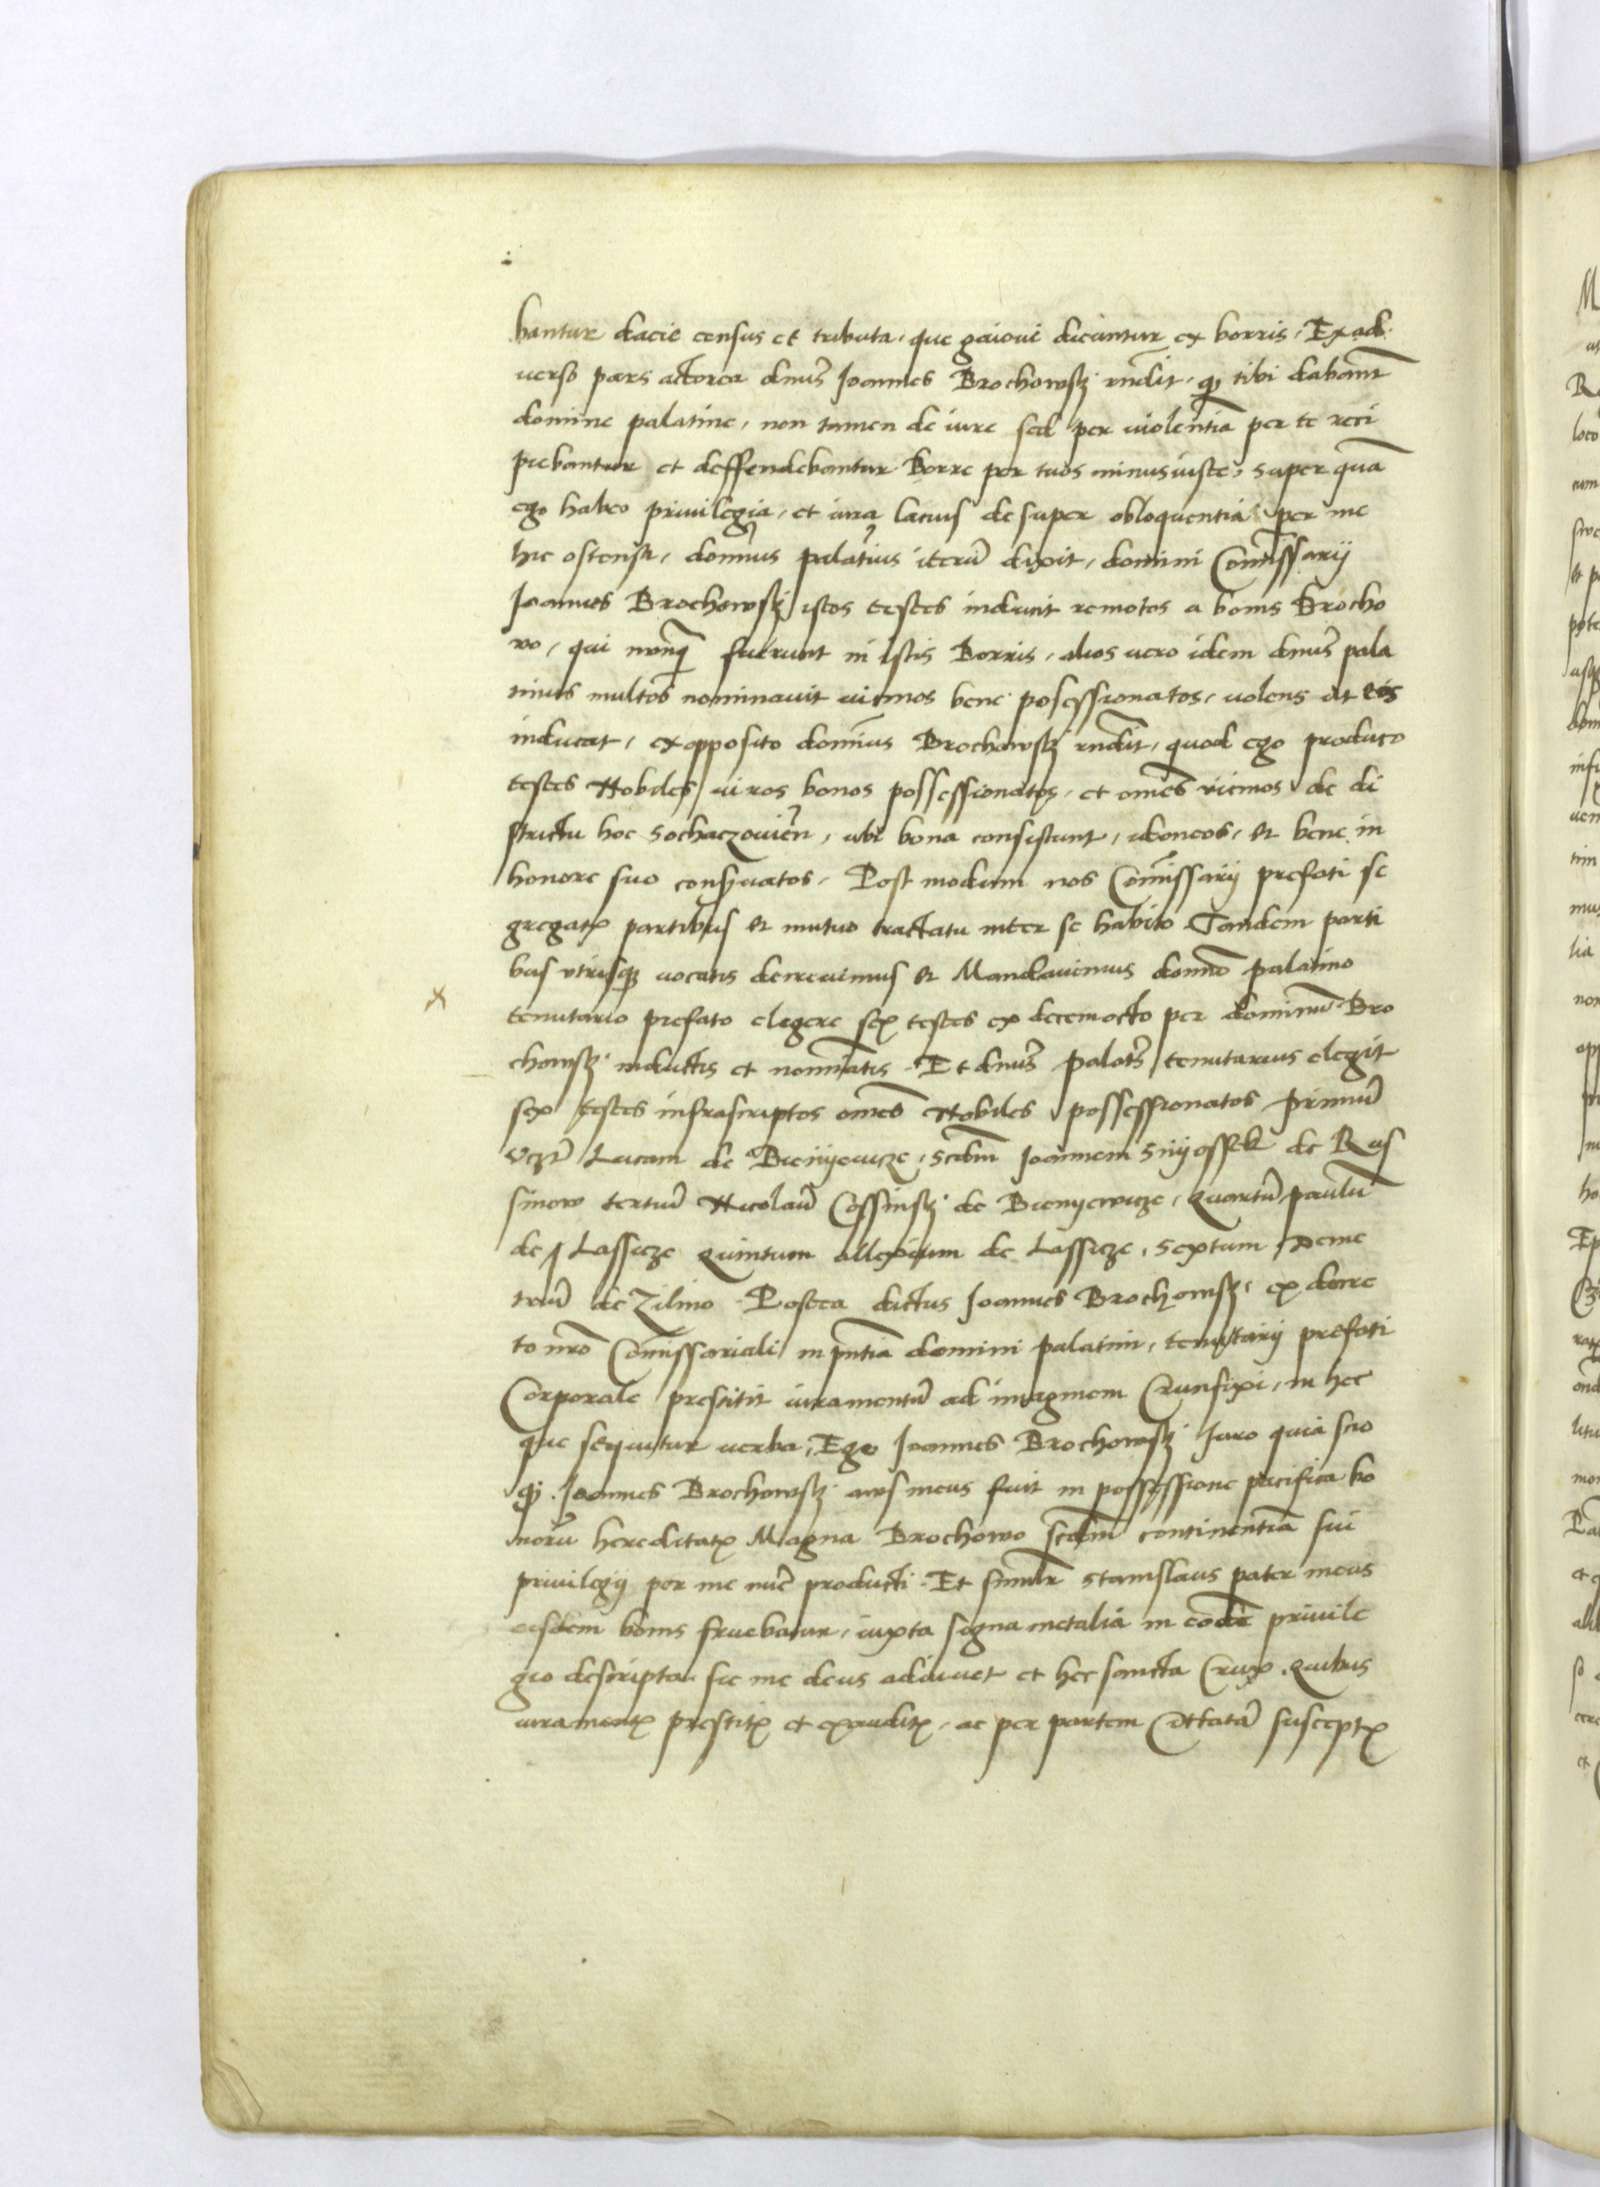 bantur dacie census et tributa, que gaiovi dicuntur ex borris, Ex ad
verso pars actorea dnus Joannes Brochowsky rndit, qz tibi dabant
domine palatine, non tamen de iure sed per violentia per te reci
piebantur et deffendebantur Borre per tuos minus iuste, super qua
ego habeo privilegia, et iura lacius de super obloquentia per me
hic ostensa, dominus palatinus iteru dixit, domini Comissarij
Joannes Brochowsky istos testes inducit remotos a bonis Brocho
vo, qui nunqz fuerunt in istis Borris, alios vero idem dnus pala
tinus multos nominavit vicinos bene possessionatos, volens ut eos
inducat, ex opposito dominus Brochowsky rndit, quod ego produco
testes Nobiles viros bonos possessionatos, et omes vicinos de di
strictu hoc Sochaczovien, ubi bona consistunt, idoneos, et bene in
honore suo conservatos, Post modum nos Comissarij prefati se
gregatis partibus et mutuo tractatu inter se habito Tandem parti
bus utrisqz vocatis decrevimus et Mandavimus domino palatino
tenutario prefato elegere sex testes ex decemocto per dominum Bro
chowsky inductis et nominatis. Et dnus palatus tenutarius elegit
sex testes infrascriptos omes Nobiles possessionatos Primum
vczt Lucam de Bieniewicze, Scdm Joannem Snyossek de Ras
sinow tertiu Nicolau Cossinsky de Bienyewicze, Quartu paulum
de Lassicze Quintum allexium de Lassicze, Sextum Deme
triu de Zilino. Postea dictus Joannes Brochowsky, ex decre
to nro Comissariali in pntia domini palatini, tenutarij prefati
Corporale prestitit iuramentu ad imaginem Crucifixi, in hec
que sequitur verba, Ego Joannes Brochowsky Juro quia scio
qz Joannes Brochowsky avus meus fuit in possessione pacifica bo
noru hereditatis Magna Brochowo scdm continentia sui
privilegij per me nuc producti. Et similr Stanislaus pater meus
eisdem bonis fruebatur, iuxta signa metalia in eode privile
gio descripta sic me deus adiuvet et hec sancta Crux. Quibus
iuramentis prestitis et exauditis, ac per partem Cittata susceptis